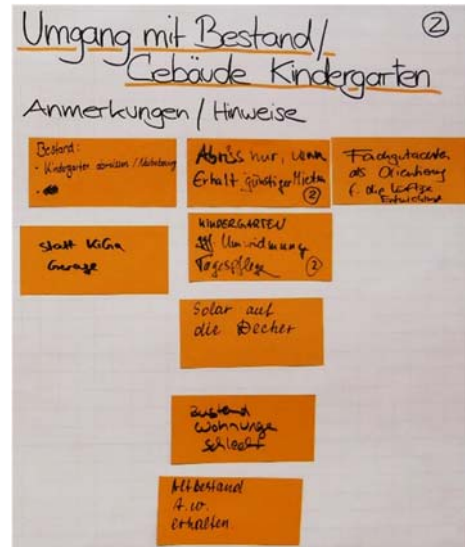 Umgang mit Bestand/
②
Gebäude Kindergarten
Anmerkungen / Hinweise
Bestand:
- Kindergarten abreissen /
Abriss nur, wenn
Erhalt günstiger Mieten
②
Fachgutachten
als Orientierung
f. die künftige
Entwicklung
statt KiGa
Garage
KINDERGARTEN
Umwidmung
Tagespflege
②
Solar auf
die Decher
Zustand
Wohnungen
schlecht
Altbestand
A.W.
erhalten.